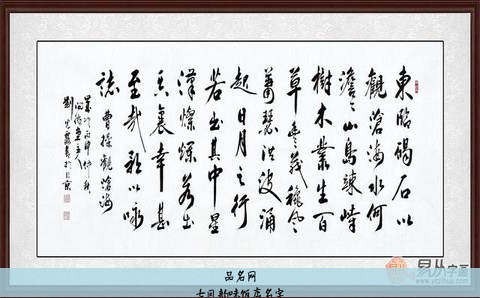 東臨碣石以
觀滄海水何
澹々山島竦峙
樹木叢生百
草豐茂秋風
蕭瑟洪波涌
起日月之行
若出其中星
漢燦爛若出
其裏幸甚
至哉歌以詠
誌 曹操觀滄海
歲次丙申仲秋
易从字画
www.yczihua.com
品名网